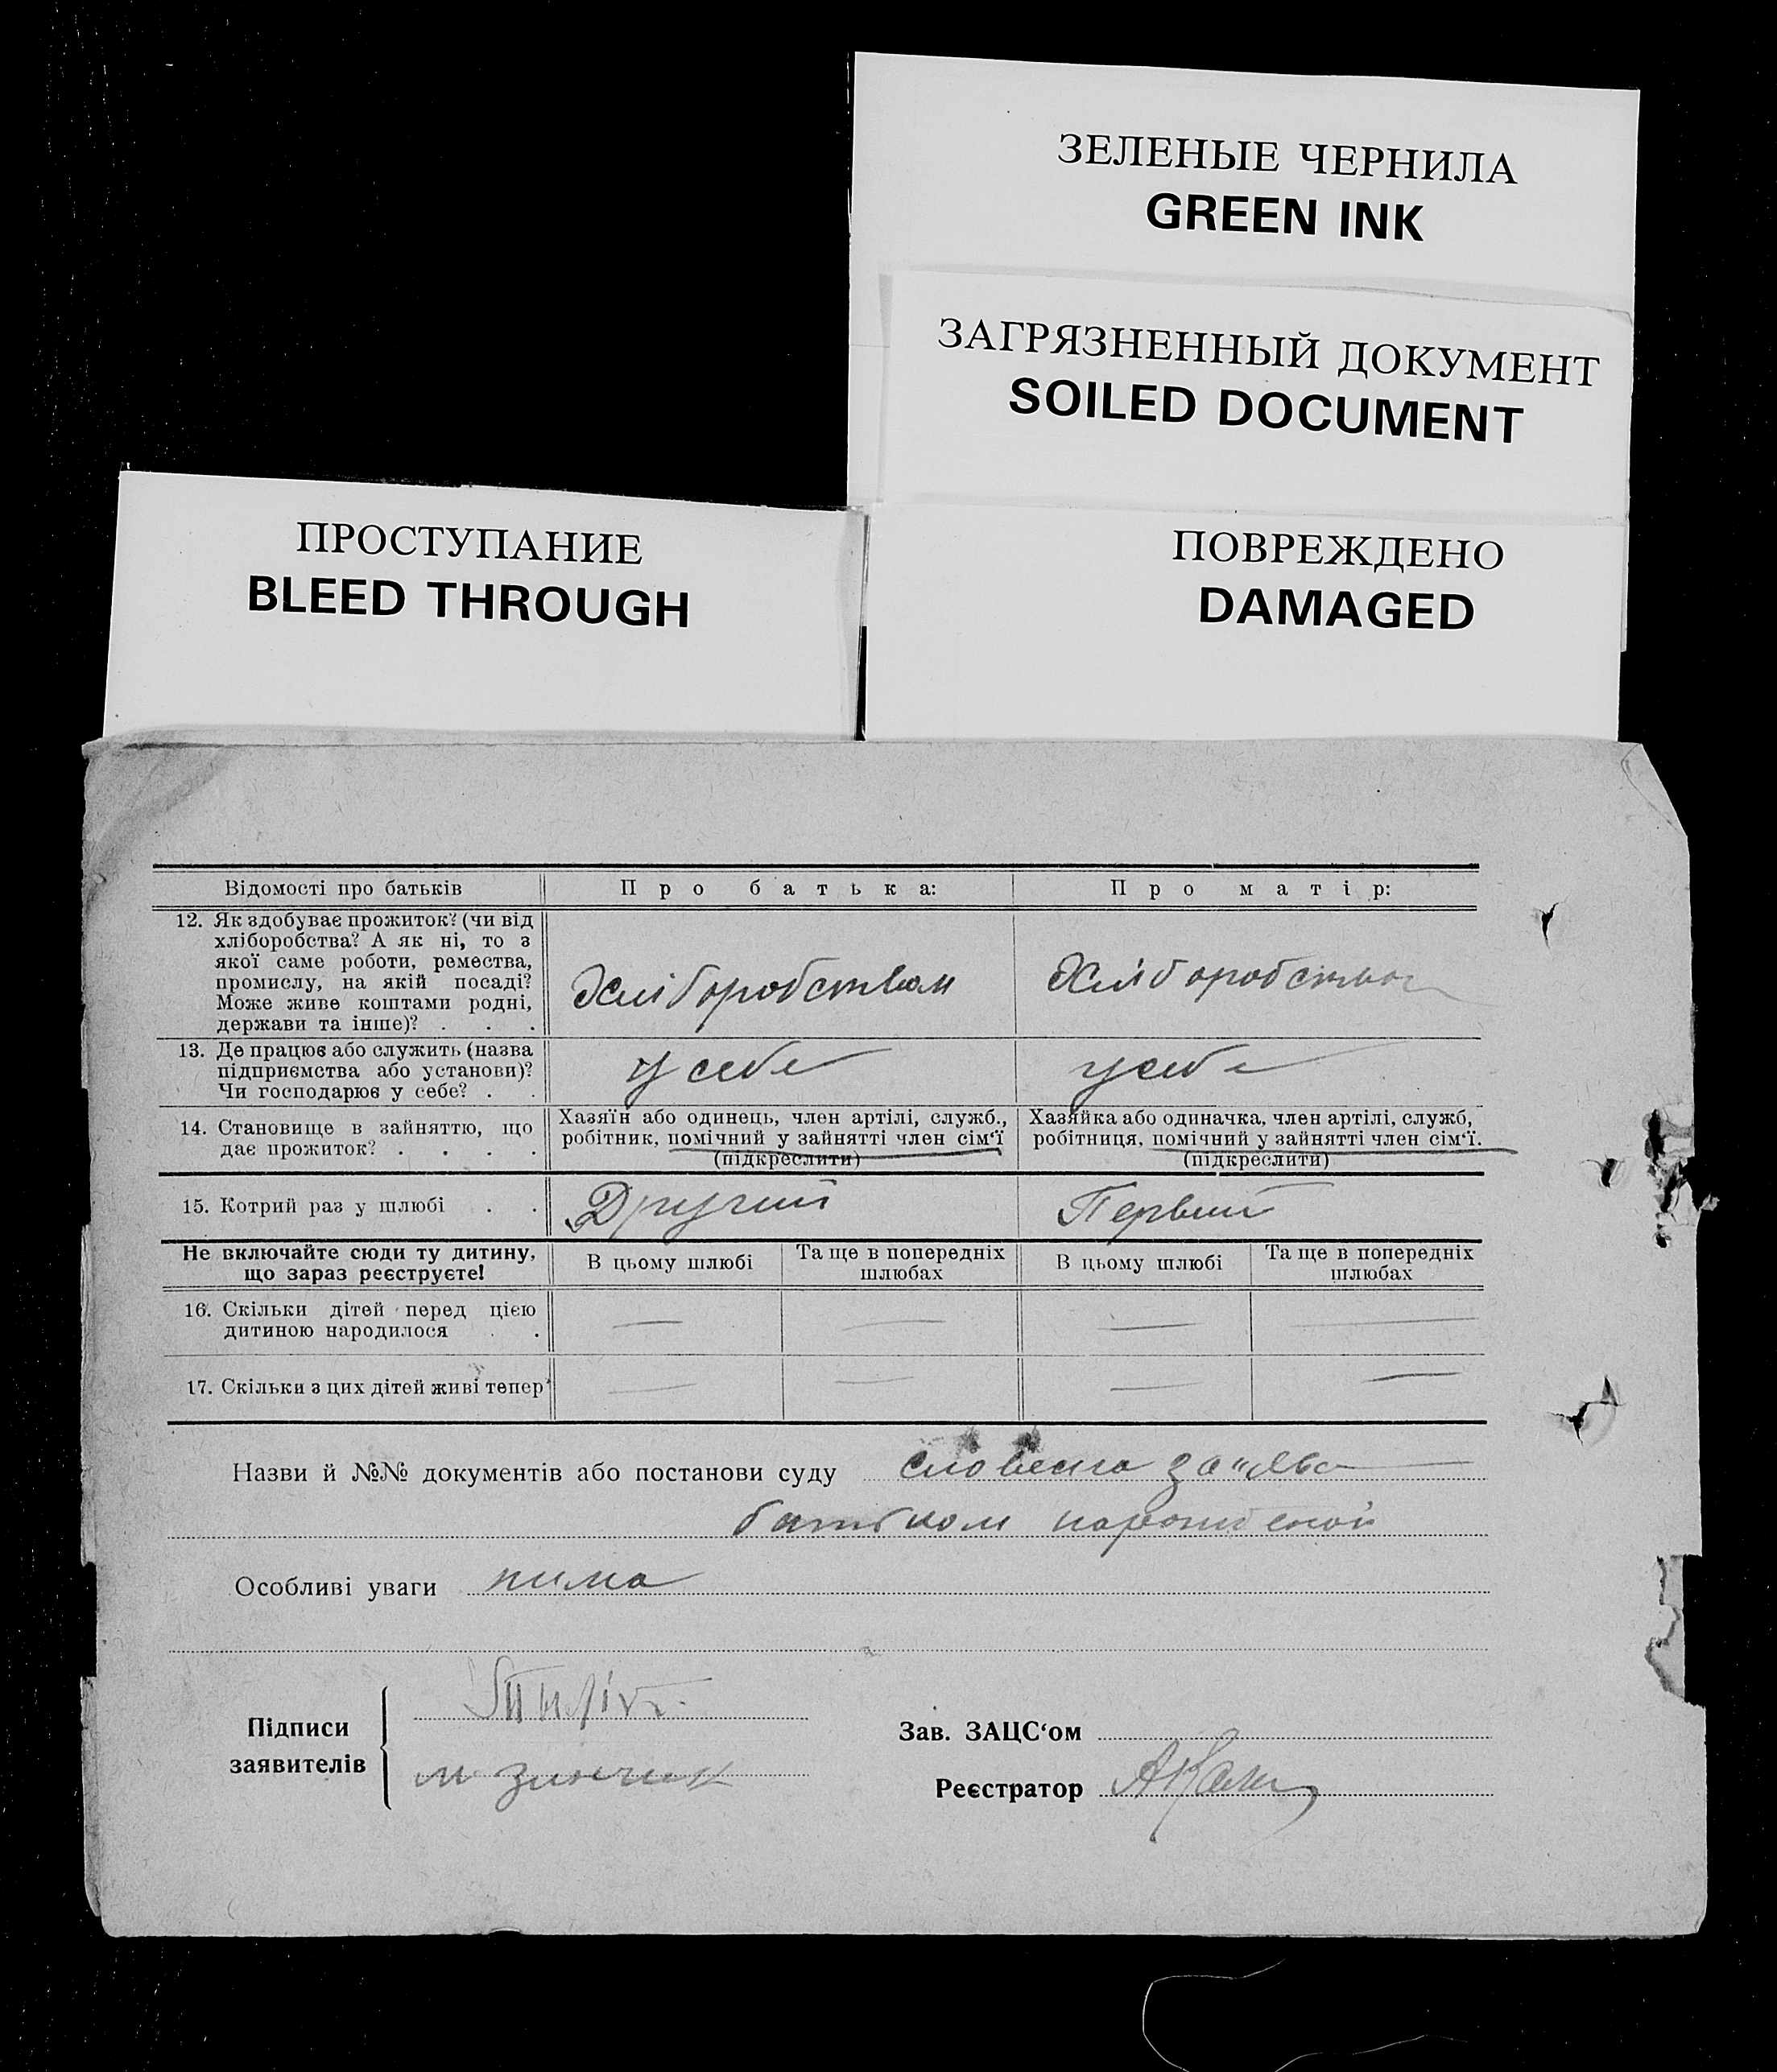 ЗЕЛЕНЫЕ ЧЕРНИЛА
GREEN INK
ЗАГРЯЗНЕННЫЙ ДОКУМЕНТ
SOILED DOCUMENT
ПРОСТУПАНИЕ
BLEED THROUGH
ПОВРЕЖДЕНО
DAMAGED
Відомості про батьків
Про батька:
Про матір:
12. Як здобуває прожиток? (чи від
хліборобства? А як ні, то з
якої саме роботи, ремества,
промислу, на якій посаді?
Може живе коштами родні,
держави та інше)? . . .
Хліборобством
Хліборобством
13. Де працює або служить (назва
підприємства або установи)?
Чи господарює у себе? . .
у себе
у себе
14. Становище в зайняттю, що
дає прожиток? . . . .
Хазяїн або одинець, член артілі, служб.,
робітник, помічний у зайнятті член сім‘ї
(підкреслити)
Хазяйка або одиначка, член артілі, служб,
робітниця, помічний у зайнятті член сім‘ї.
(підкреслити)
15. Котрий раз у шлюбі . .
Другий
Первий
Не включайте сюди ту дитину,
що зараз реєструєте!
В цьому шлюбі
Та ще в попередніх
шлюбах
В цьому шлюбі
Та ще в попередніх
шлюбах
16. Скільки дітей перед цією
дитиною народилося . .
— — — —
17. Скільки з цих дітей живі тепер
— — — —
Назви й №№ документів або постанови суду словесна за"ява
батьком
Особливі уваги нима
Підписи
заявителів
Зав. ЗАЦС‘ом
Реєстратор